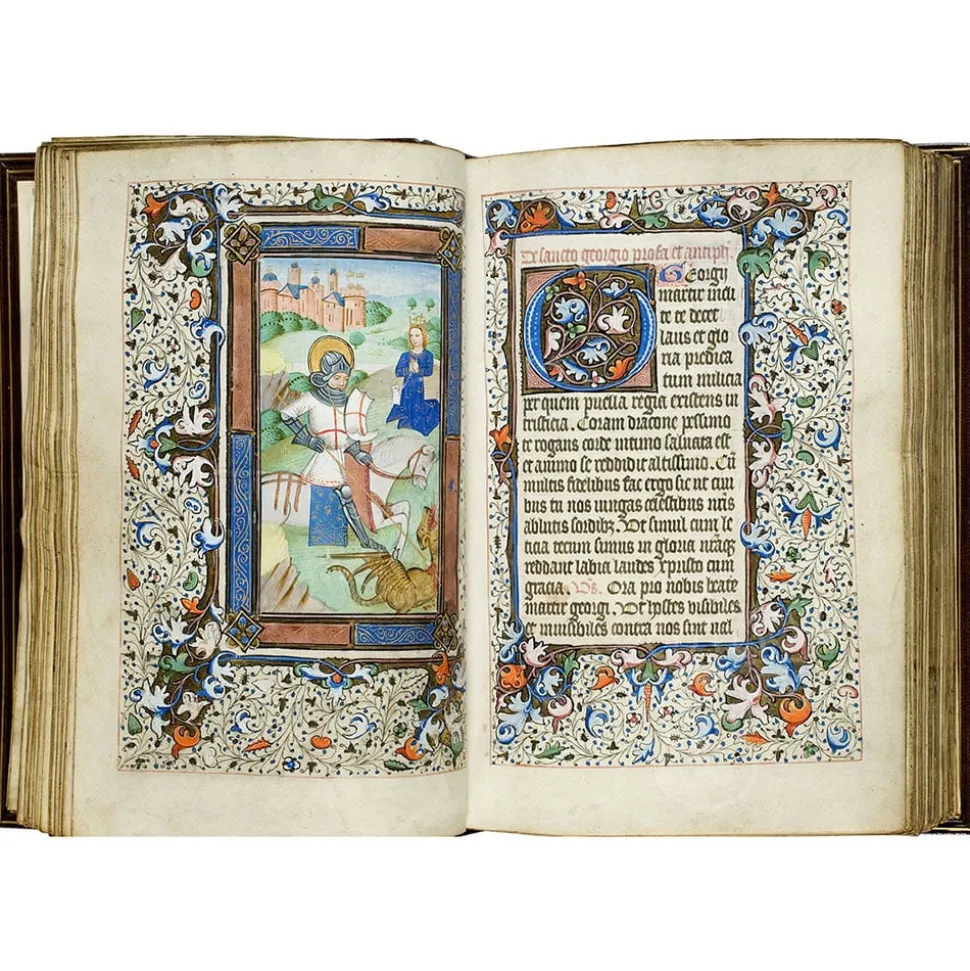 De sancto georgio prosa et antiph.
Georgi
martir incli
te te decet
laus et glo
ria predica
tum milicia
per quem puella regia existens in
tristicia. Coram dracone pessimo
te rogans corde intimo saluata est
et animo se reddidit altissimo. Cū
multis fidelibus fac ergo sic ut
bus tu nos iungas celestibus nr̄is
ablutis sordibꝫ. Ut simul cum le
ticia tecum simus in gloria nr̄aqꝫ
reddant labia laudes xp̄isto cum
gracia. Vs. Ora pro nobis beate
martir georgi. Ut hostes visibiles
et inuisibiles contra nos sint val